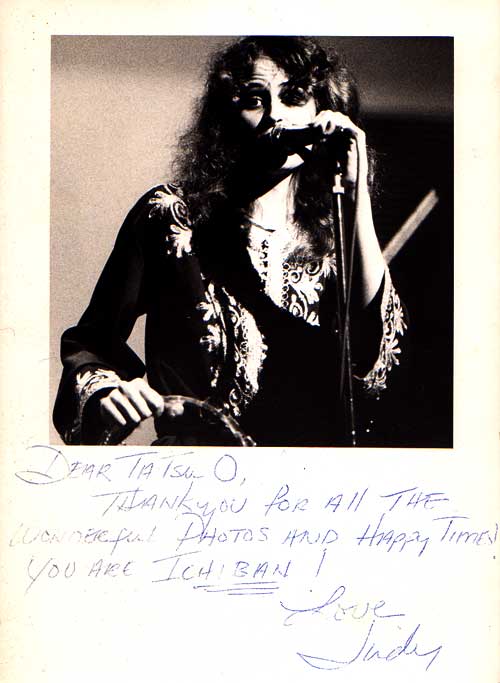 DEAR TATSU O,
THANKYOU FOR All THE
WONDERFUL PHOTOS AND HAPPY TIMES
YOU ARE ICHIBAN!
Love
Judy